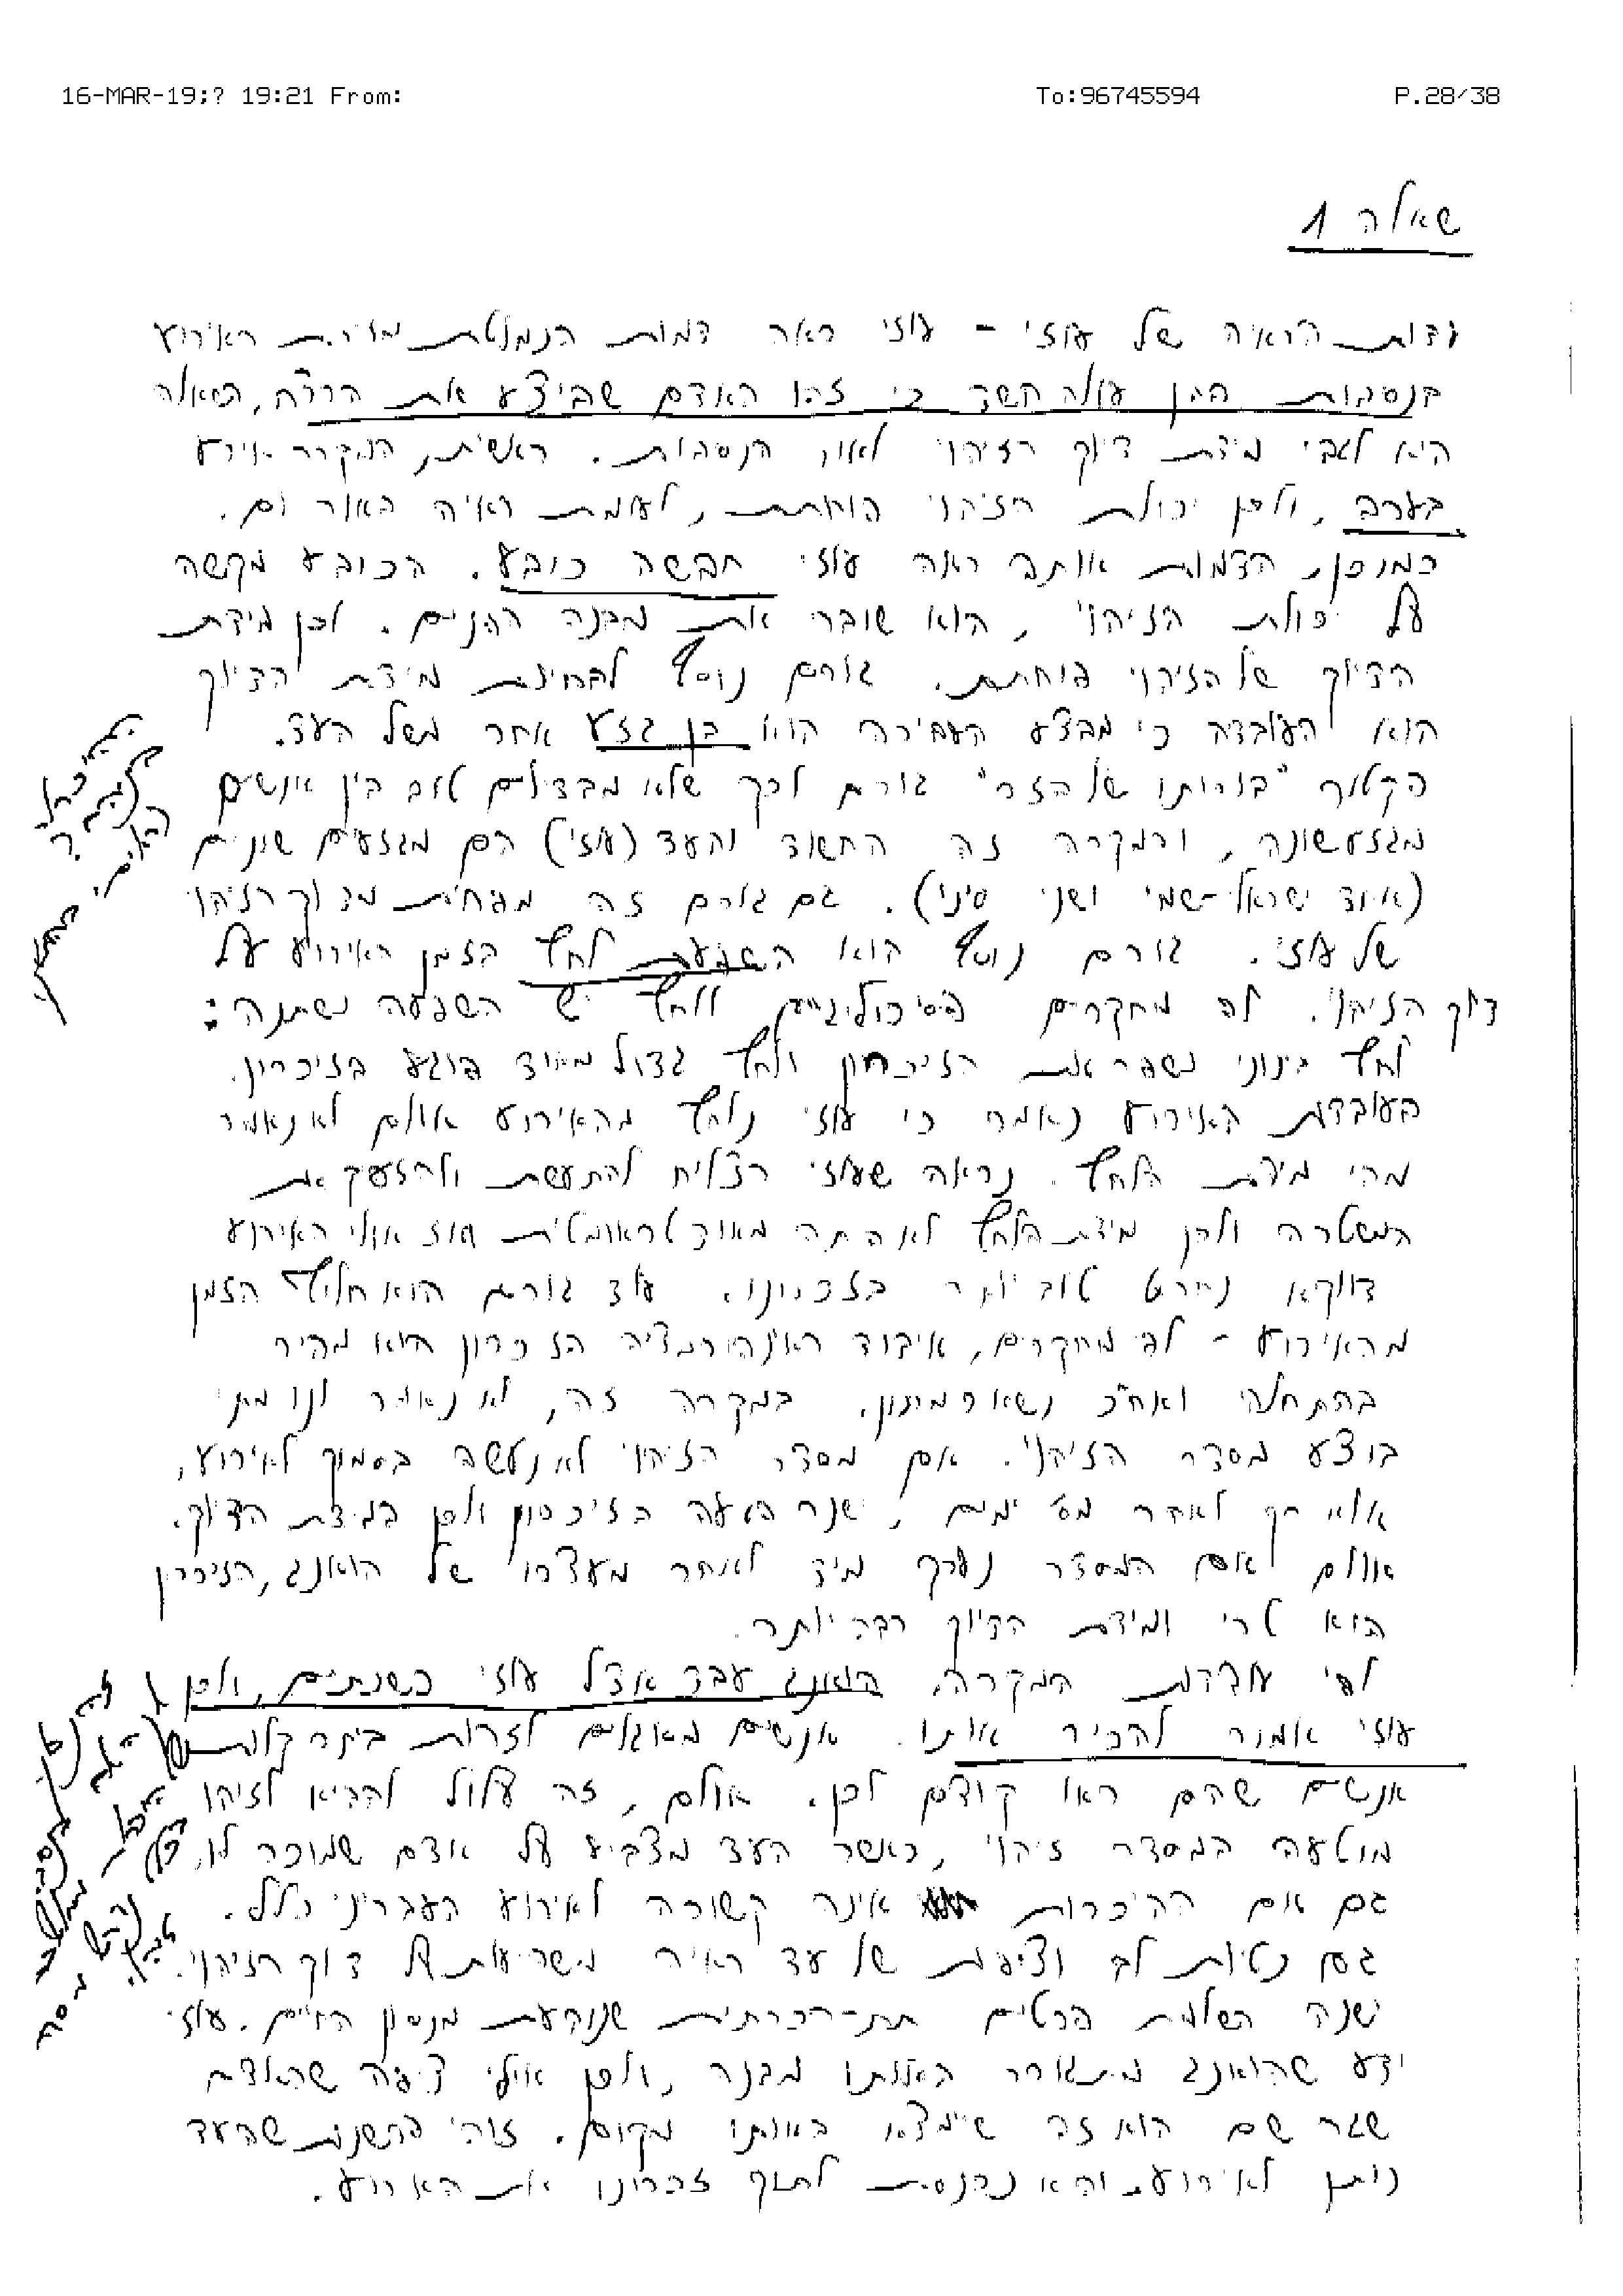 16-MAR-19;? 19:21 From: To:96745594 P.28/38
שאלה 1
עדות הראיה של עוזי - עוזי ראה דמות הנמלטת מזירת האירוע
בנסיבות בהן עולה חשד כי זהו האדם שביצע את הרצח, השאלה
היא לגבי מידת דיוק הזיהוי לאור הנסיבות. ראשית, המקרה אירע
בערב, ולכן יכולת הזיהוי פוחתת, לעומת ראיה באור יום.
כמו כן, הדמות אותה ראה עוזי חבשה כובע. הכובע מקשה
על יכולת הזיהוי, הוא שובר את מבנה הפנים. לכן מידת
הדיוק של הזיהוי פוחתת. גורם נוסף לבחינת מידת הדיוק
הוא העובדה כי מבצע העבירה הוא בן גזע אחר משל העד.
הקלטר "בורותו של הזר" גורם לכך שלא מבדילים טוב בין אנשים
מגזע שונה, ובמקרה זה החשוד והעד (עוזי) הם מגזעים שונים
(אחד ישראלי-שמי ושני סיני). גם גורם זה מפחית מדיוק הזיהוי
של עוזי. גורם נוסף הוא השפעת לחץ בזמן האירוע על
דיוק הזיהוי. לפי מחקרים פסיכולוגיים ללחץ יש השפעה משתנה:
לחץ בינוני משפר את הזיכרון ולחץ גדול מאוד פוגע בזיכרון.
בעובדות האירוע נאמר כי עוזי נלחץ מהאירוע אולם לא נאמר
מהי מידת הלחץ. נראה שעוזי הצליח להתעשת ולהזעיק את
המשטרה ולכן מידת הלחץ לא היתה מאוד טראומטית ואז אולי האירוע
דווקא נחרט טוב יותר בזכרונו. עוד גורם הוא חליפת הזמן
מהאירוע - לפי מחקרים, איבוד האינפורמציה הזכרון הוא מהיר
בהתחלה ואח"כ נשאר מתון. במקרה זה, לא נאמר לנו מתי
בוצע מסדר הזיהוי. אם מסדר הזיהוי לא נעשה בסמוך לאירוע,
אלא רק לאחר מס' ימים, ישנה פגיעה בזיכרון ולכן במידת הדיוק.
אולם אם המסדר נערך מיד לאחר מעצרו של הואנג, הזיכרון
הוא טרי ומידת הדיוק רבה יותר.
לפי עובדות המקרה הואנג עבד אצל עוזי כשנתיים, ולכן
עוזי אמור להכיר אותו. אנשים מסוגלים לזהות ביתר קלות
אנשים שהם ראו קודם לכן. אולם, זה עלול להביא לזיהוי
מוטעה במסדר זיהוי, כאשר העד מצביע על אדם שמוכר לו,
גם אם ההיכרות אינה קשורה לאירוע העברייני כלל.
גם נטיות לב וציפיות של עד ראיה משפיעות על דיוק הזיהוי.
ישנה השלמת פרטים תת-הכרתית שנובעת מנסיון החיים. עוזי
ידע שהואנג מתגורר באותו מבנה, ולכן אולי ציפה שהאדם
שגר שם הוא זה שימצא באותו מקום. זוהי פרשנות שהעד
נותן לאירוע והיא נכנסת לתוך זכרונו את האירוע.